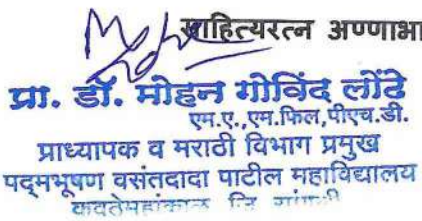 साहित्यरत्न अण्णाभा
प्रा. डॉ. मोहन गोविंद लोंढे
एम.ए.,एम.फिल,पीएच.डी.
प्राध्यापक व मराठी विभाग प्रमुख
पद्मभूषण वसंतदादा पाटील महाविद्यालय
कवठेमहांकाळ जि. सांगली